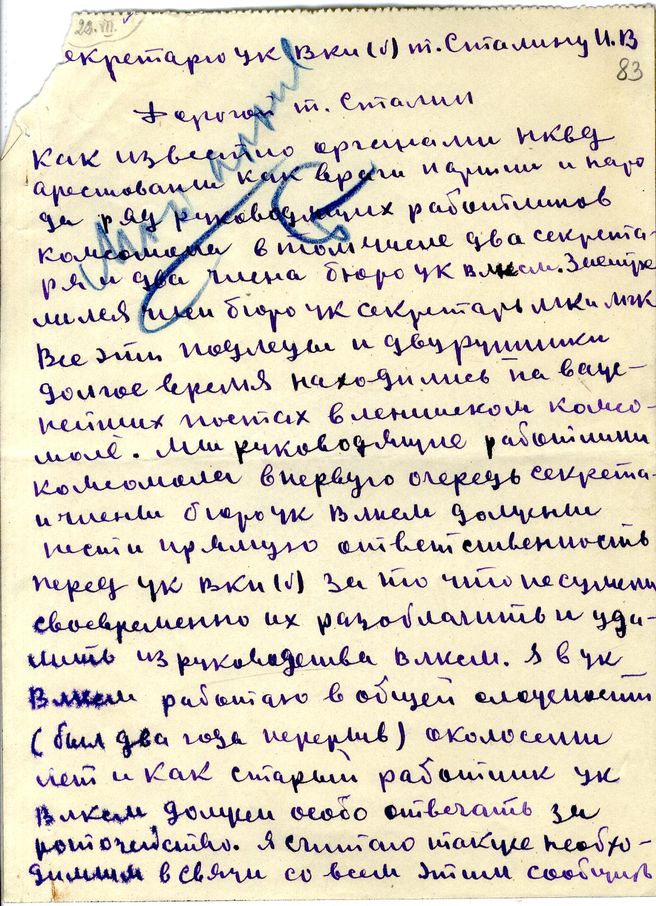 22.VII.
екретарю цк ВКП(б) т. Сталину И.В
83
Дорогой т. Сталин
Как известно органами НКВД
арестованы как враги партии и наро
да ряд руководящих работников
комсомола в том числе два секрета-
ря и два члена бюро цк влксм. Застре
лился член бюро цк секретарь мк и мгк
Все эти подлецы и двурушники
долгое время находились на важ-
нейших постах в ленинском комсо-
моле. Мы руководящие работники
комсомола в первую очередь секрета-
и члены бюро цк влксм должны
нести прямую ответственность
перед цк вкп(б) за то что не сумели
своевременно их разоблачить и уда-
лить из руководства влксм. Я в цк
Влксм работаю в общей сложности
(был два года перерыв) около семи
лет и как старый работник цк
влксм должен особо отвечать за
ротозейство. Я считаю также необхо-
димым в связи со всем этим сообщить